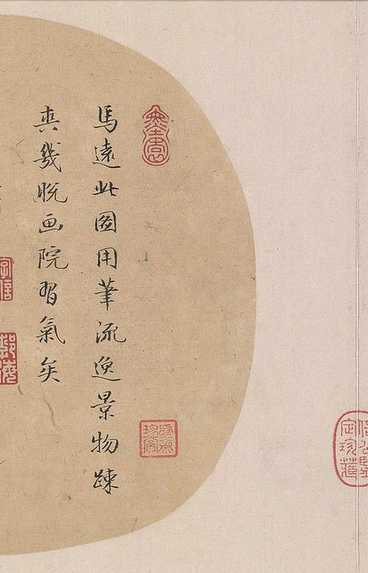 馬遠此圖用筆流逸景物踈
爽幾脱画院習氣矣